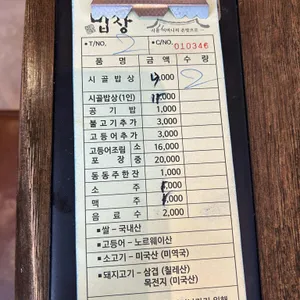 밥상
시골 어머니의 손맛으로
•T/NO. 2 •C/NO. 010346
품 명 금 액 수 량
시골밥상 ,000 2
시골밥상(1인) ,000
공기밥 1,000
불고기추가 3,000
고등어추가 3,000
고등어조림 소 16,000
포장 중 20,000
동동주한잔 1,000
소주 ,000
맥주 ,000
음료수 2,000
▪쌀 – 국내산
▪고등어 – 노르웨이산
▪소고기 – 미국산 (미역국)
▪돼지고기 – 삼겹 (칠레산)
목전지 (미국산)